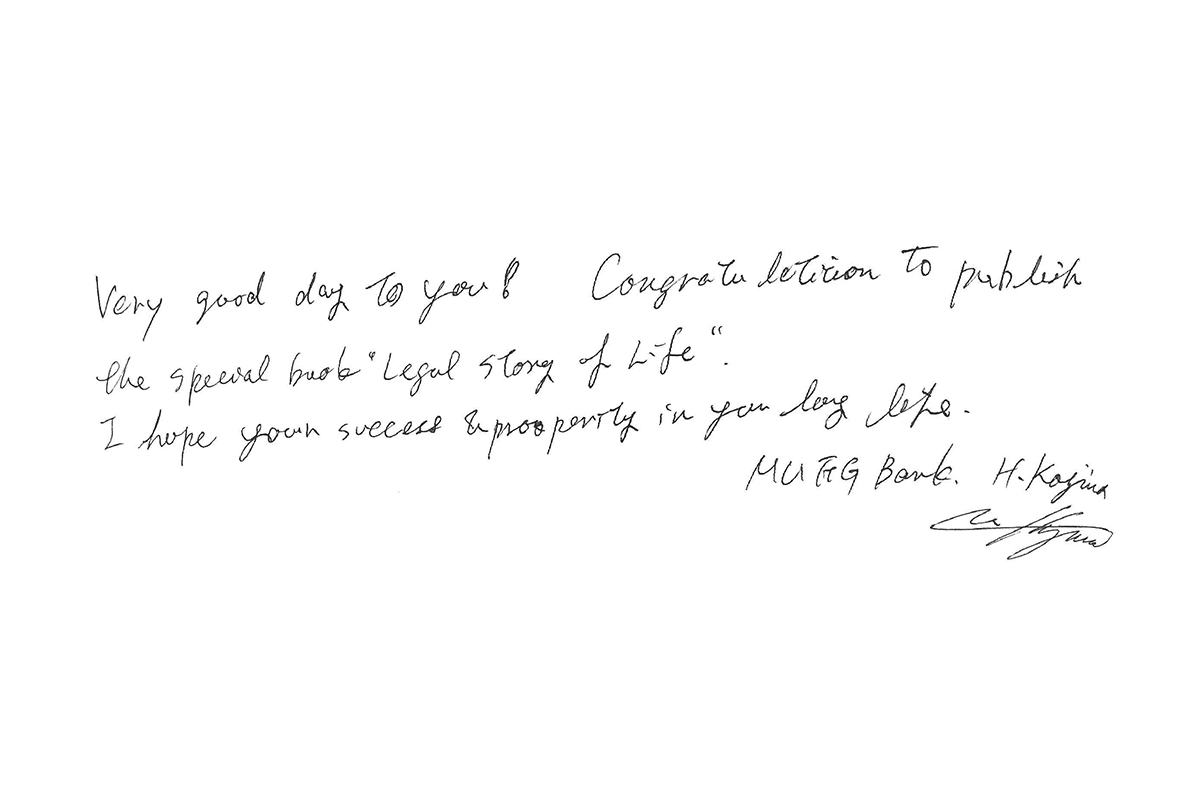 Very good day to you! Congratuletition to publish
the special book "Legal Story of Life".
I hope your success & prosperity in you long life.
MUFG Bank. H. Kojima